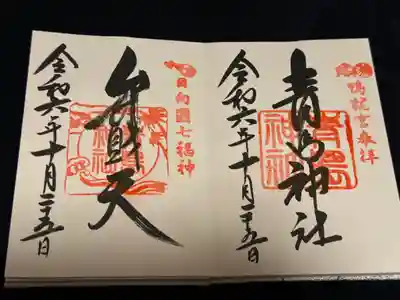 鴨就宮奉拝
青島神社
令和六年十月二十五日
日向國七福神
弁財天
令和六年十月二十五日